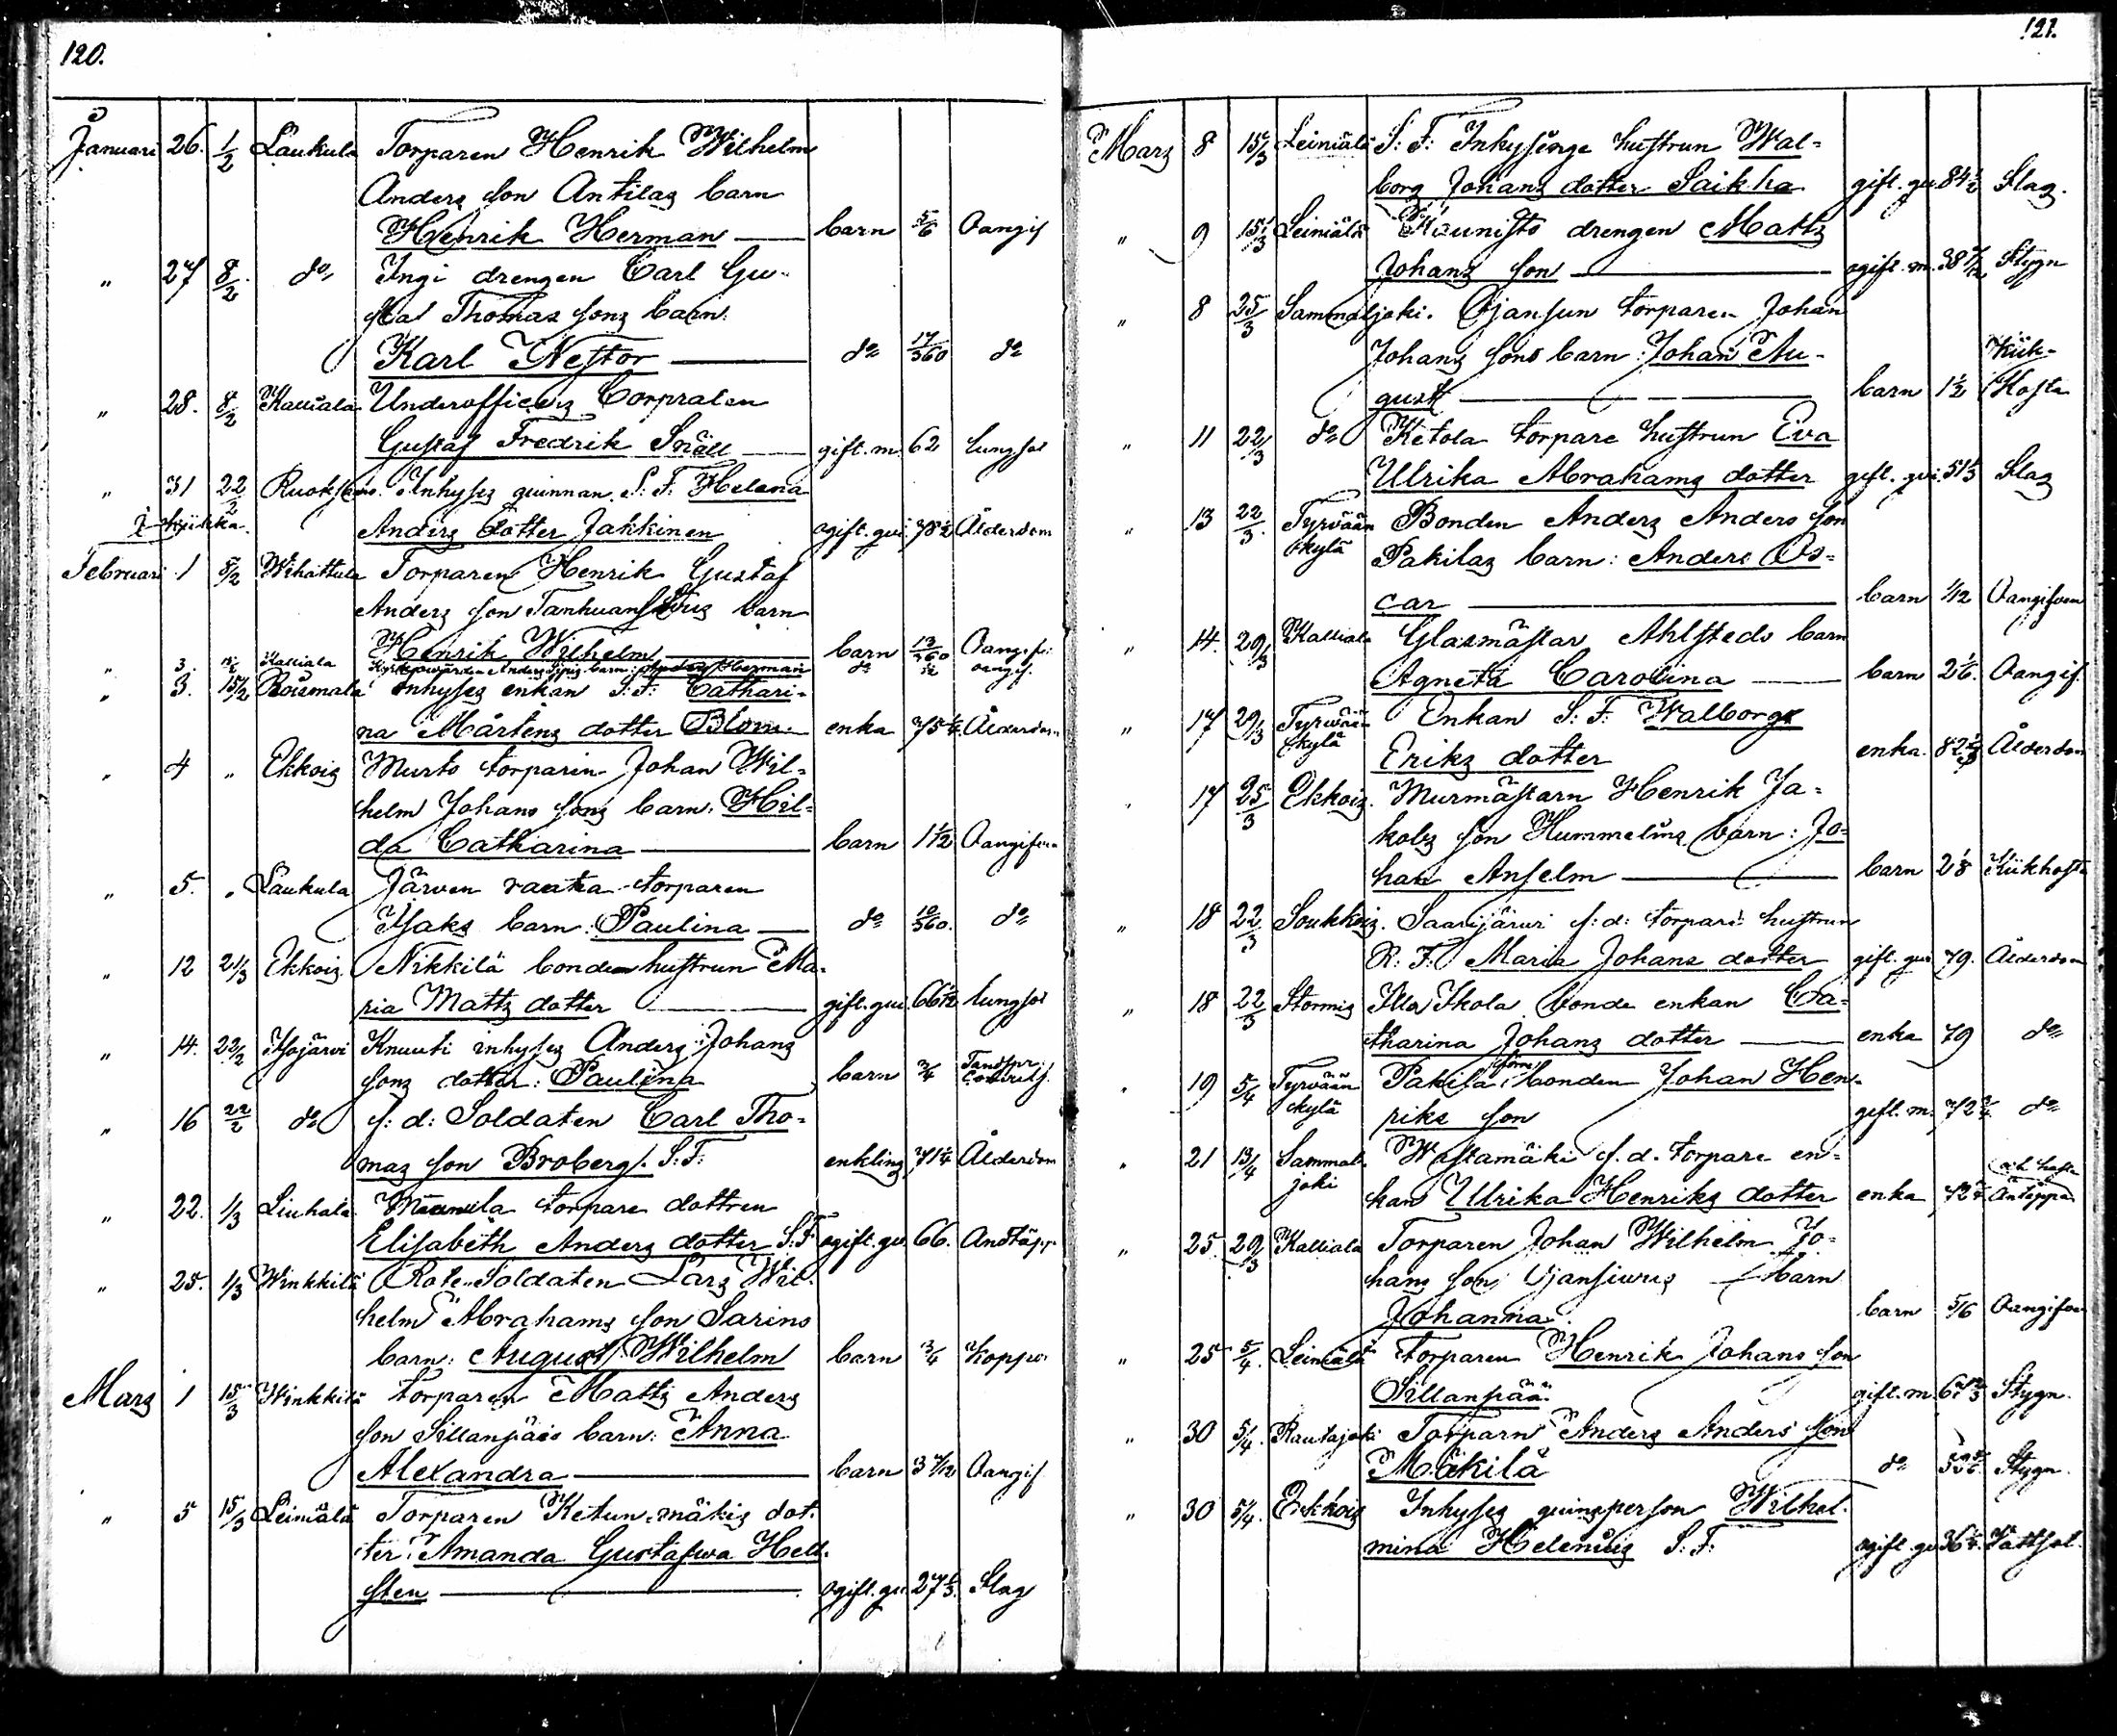 120.
Januari 26. 1/2 Laukula Torparen Henrik Wilhelm
Anders son Antilas barn
Henrik Herman barn 5/6 Oangif
" 27 8/2 do Ingi drengen Carl Gu-
staf Thomas sons barn:
Karl Nestor do 17/360 do
" 28. 8/2 Kalliala Underofficers Corpralen
Gustaf Fredrik Snäll gift. m. 62 lungsot
" 31 22/2 Inhyses quinnan S: F: Helena
Anders dotter Jakkinen ogift. qvi. 78 1/2 Ålderdom
Februari 1 8/2 Wihattula Torparen Henrik Gustaf
Anders son barn
Henrik Wilhelm barn 13/360 Oangif:
" 3. Kalliala barn: Anders Herman do oangif.
" 3. 15/2 Roismala Inhyses enkan S: F: Cathari-
na Mårtens dotter Blom enka 75 1/4 Ålderdom
" 4 " Ekkois Murto torparen Johan Wil-
helm Johans sons barn: Hil-
da Catharina barn 1 1/2 Oangifven
" 5. " Laukula Järven ranta torparen
Isaks barn: Paulina do 10/360. do
" 12 21/3 Ekkois Nikkilä bonde hustrun Ma-
ria Matts dotter gift. qui. 66 1/2 lungsot
" 14. 22/2 Illojärvi Knuuti inhyses Anders Johans
sons dotter: Paulina barn 3/4
" 16 22/2 do f: d: Soldaten Carl Tho-
mas son Broberg S: F: enkling 71 1/4 Ålderdom
" 22. 1/3 Liuhala torpare dottren
Elisabeth Anders dotter S: F: ogift. qv. 66. Andtäpp
" 25. 1/3 Winkkilä Rote Soldaten Lars Wil-
helm Abrahams son Sarins
barn: August Wilhelm barn 3/4 Koppor
Mars 1 15/3 Winkkilä Torparen Matts Anders
son Sillanpääs barn: Anna
Alexandra barn 3 7/12 Oangif
" 5 15/3 Leiniälä Torparen Ketun-mäkis dot-
ter: Amanda Gustafwa Hell-
sten ogift. qv. 27 1/3. Slag
121.
Mars 8 15/3 Leiniälä S: F: Inhysinge hustrun Wal-
borg Johans dotter Saikha gift. qv. 84 1/2 Slag.
" 9 15/3 Leiniälä Kaunisto drengen Matts
Johans son ogift. m. 38 7/12 Stygn
" 8 25/3 Sammaljoki. Ojansun torparen Johan
Johans sons barn: Johan Au- Kik-
gust barn 1 1/2 Hosta
" 11 22/3 do Ketola torpare hustrun Eva
Ulrika Abrahams dotter gift. qvi. 51 1/3 Slag
" 13 22/3. Tyrvään Bonden Anders Anders son
kylä Pakilas barn: Anders Os-
car barn 1/12 Oangifven
" 14. 29/3 Kalliala Glasmästar Ahlsteds barn
Agneta Carolina barn 2 1/6. Oangif.
" 17 29/3 Tyrvään Enkan S: F: Walborg
kylä Eriks dotter enka. 82 Ålderdom
" 17 25/3 Ekkois. Murmästarn Henrik Ja-
kobs son Hummelins barn: Jo-
han Anselm barn 2 1/8 Kikhosta
" 18 22/3 Soukkois. Saarijärwi f: d: torpare hustrun
R. F. Maria Johans dotter gift. qvi 79. Ålderdom
" 18 22/3 Stormis Illa Ikola bonde enkan Ca-
tharina Johans dotter enka 79 do
" 19 5/4 Tyrvään Pakila förra bonden Johan Hen-
kylä riks son gift. m. 72 3/4 do
" 21 13/4 Sammal- Wastamäki f. d. torpare en- och hosta
joki kan Ulrika Henriks dotter enka 72 Andtäppa
" 25. 29/3 Kalliala Torparen Johan Wilhelm Jo-
hans son barn
Johanna. barn 5/6 Oangifven
" 25 5/4. Leiniälä Torparen Henrik Johans son
Sillanpää. gift. m. Stygn.
" 30 5/4. Rautajoki Torparn Anders Anders son
Mäkilä do Stygn.
" 30 5/4. Ekkois Inhyses quinsperson Wilhel-
mina Helenius S: F: ogift. qv. 36 1/4.